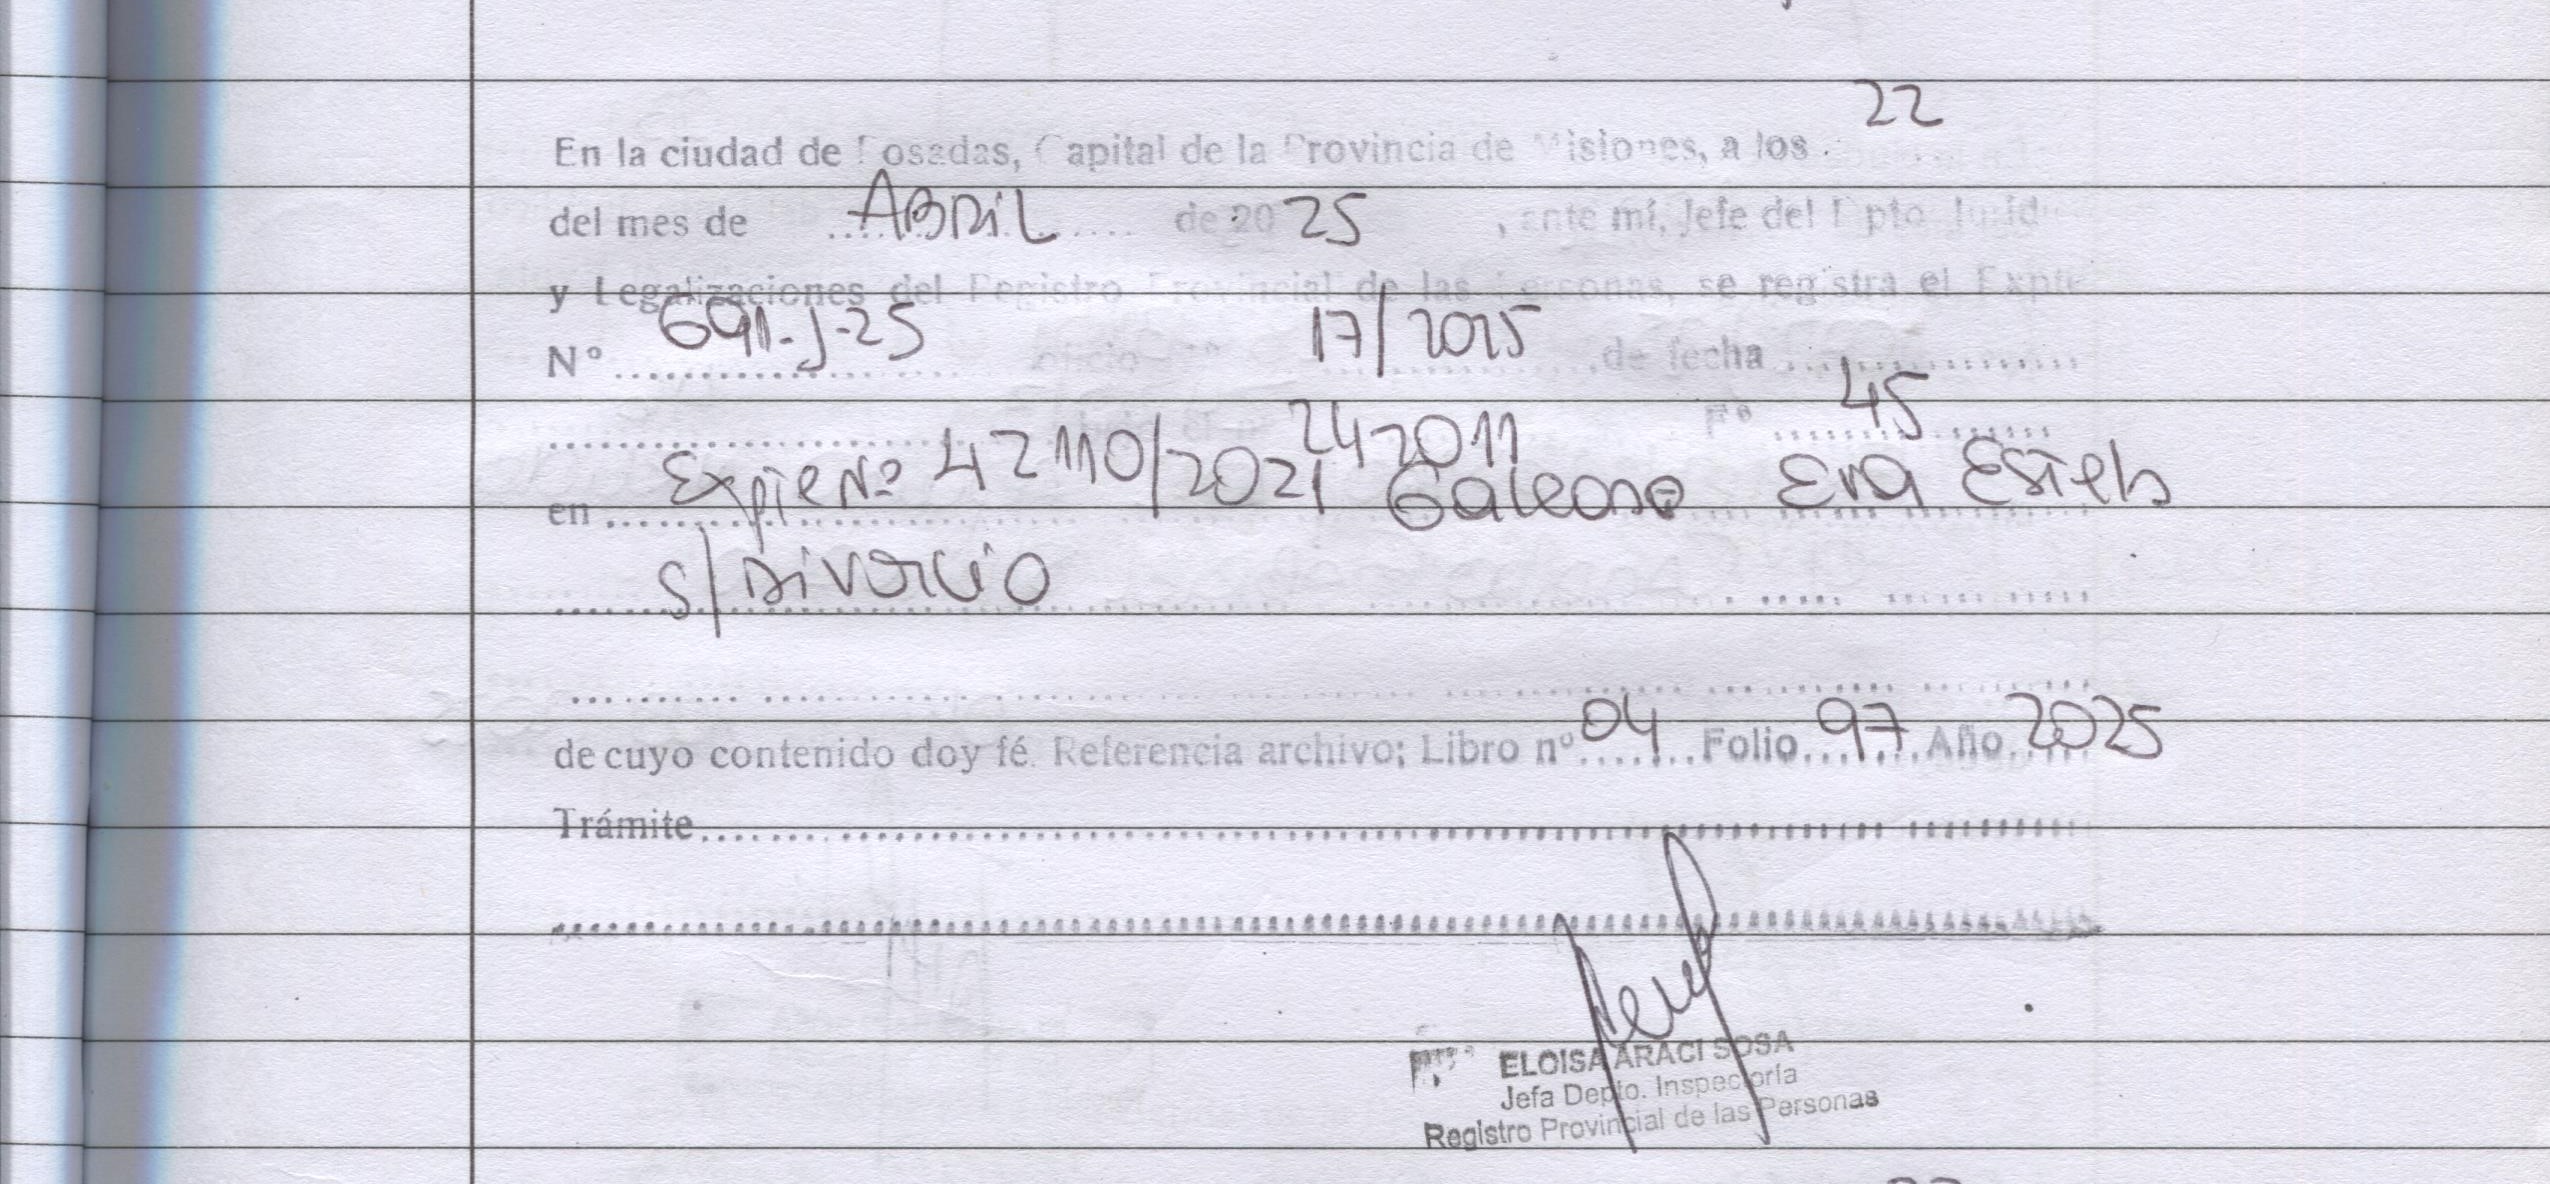 22
En la ciudad de Posadas, Capital de la Provincia de Misiones, a los .
del mes de ABRIL de 20 25 , ante mí, Jefe del Dpto. Juríd
y Legalizaciones del Registro Provincial de las Personas, se registra el Expte
Nº 691-J-25 oficio Nº 17/2025 de fecha
24 2011 Fº 45
en Expte Nº 42110/2021 Galeano Eva Estela
S/ Divorcio
de cuyo contenido doy fé. Referencia archivo; Libro nº 04 Folio 97 Año 2025
Trámite
ELOISA ARACI SOSA
Jefa Depto. Inspectoría
Registro Provincial de las Personas